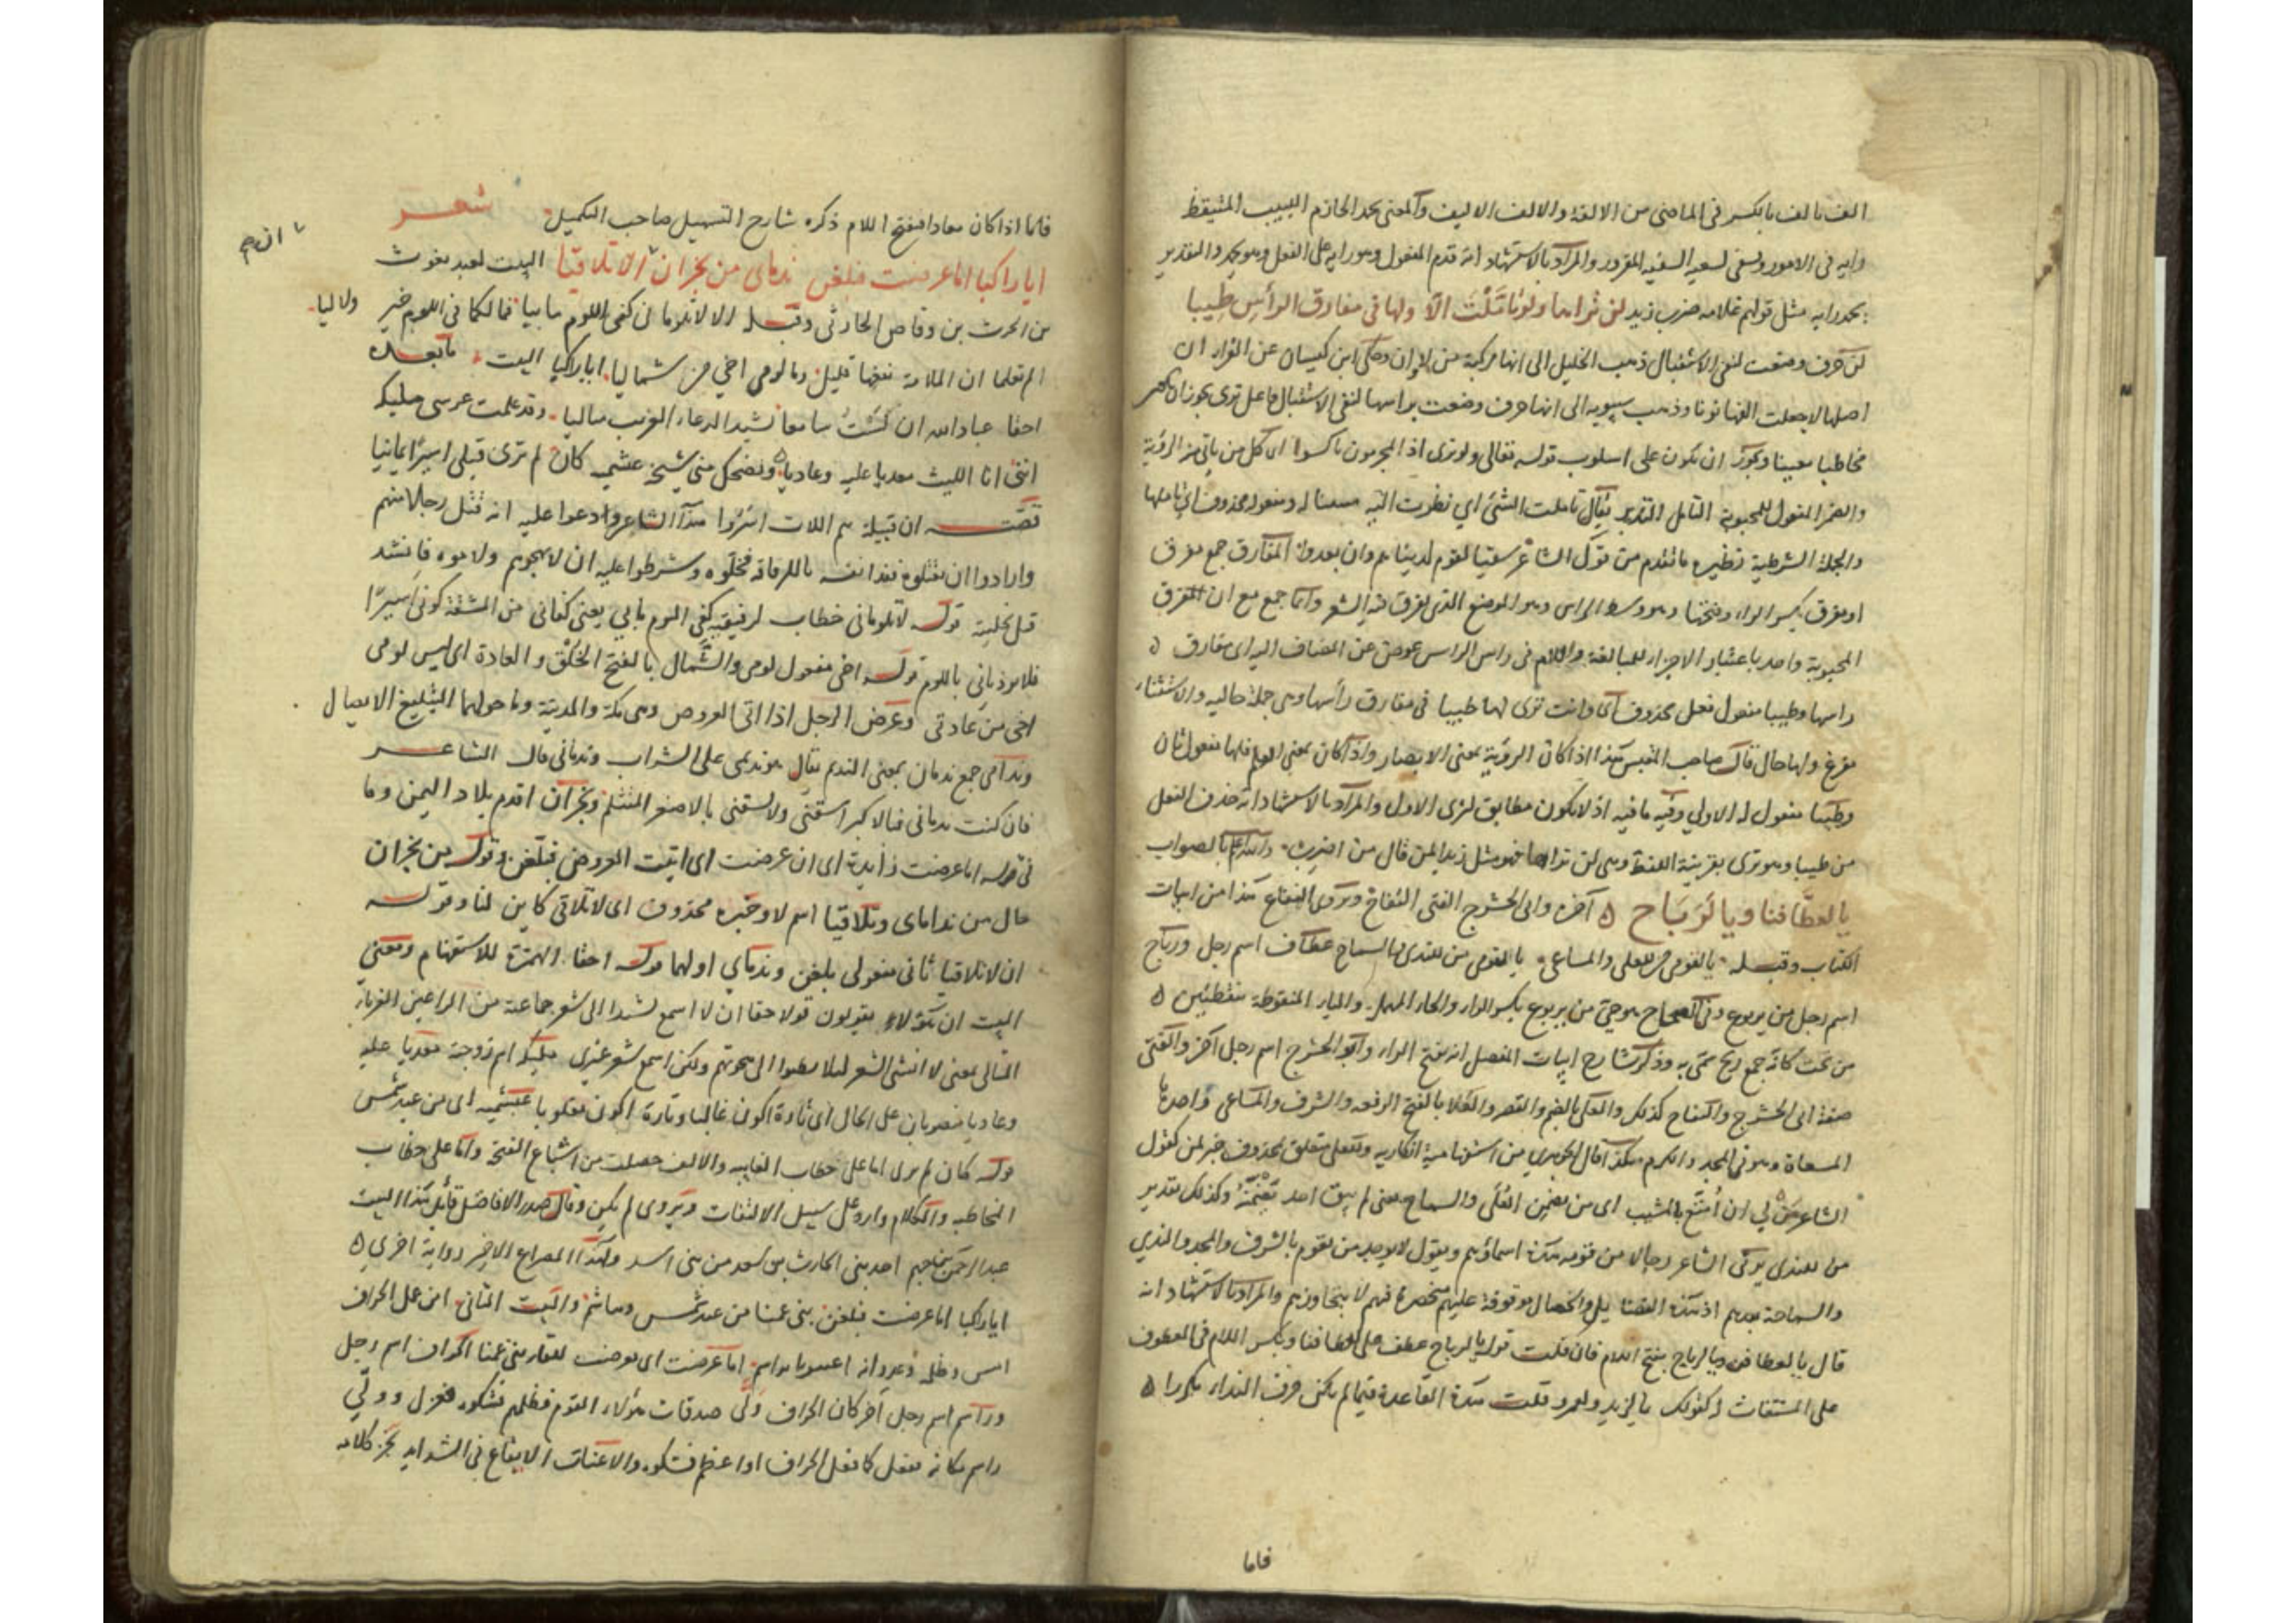 الف بالف بالكسر فى الماضى من الالفة والالف الاليف والمعنى يحمد الحازم اللبيب المتيقظ
رايه فى الامور وسعى لسعيه السفيه المغرور والمراد بالاستشهاد انه قدم المفعول وهو رايه على الفعل وهو يحمد والتقدير
يحمد رايه مثل قولهم غلامه ضرب زيد لن تراها ولو تأمَّلْتَ الّا ولها فى مفارق الرأسِ طِيبا
لن حرف وضعت لنفى الاستقبال ذهب الخليل الى انها مركبة من لا وان وحكى ابن كيسان عن الفراء ان
اصلها لا جعلت الفها نونا وذهب سيبويه الى انها حرف وضعت براسها لنفى الاستقبال فاعل ترى يجوز ان يكون
مخاطبا معينا ويجوز ان يكون على اسلوب قوله تعالى ولو ترى اذ المجرمون ناكسوا اى كل من ياتى منه الرؤية
والضمير المفعول للمحبوبة التأمل التدبر يقال تاملت الشئ اي نظرت اليه مستبينا له ومفعوله محذوف اى تاملتها
والجملة الشرطية نظيره ما تقدم من قول الشاعر سقيا لقوم لدينا هم وان بعدوا المفارق جمع مفرق
او مفرق بكسر الراء وفتحها وهو وسط الراس وهو الموضع الذى يفرق فيه الشعر وانما جمع مع ان المفرق
المحبوبة واحد باعتبار الاجزاء للمبالغة واللام فى راس الراس عوض عن المضاف اليه اى مفارق ٥
راسها وطيبا مفعول فعل محذوف اى وانت ترى لها طيبا فى مفارق رأسها وهى جملة حاليه والاستثناء
مفرغ ولها حال قال صاحب المقبس هذا اذا كان الرؤية بمعنى الابصار واذا كان بمعنى العلم فلها مفعول ثان
وطيبا مفعوله الاولى وفيه ما فيه اذ لا يكون مطابق لترى الاول والمراد بالاستشهاد انه حذف الفعل
من طيبا وهو ترى بقرينة اللفظ وهى لن تراها فهو مثل زيدا لمن قال من اضرب والله اعلم بالصواب
يا لعطَّافنا ويا لَرَبَاح ٥ آخره وابى الحشرج الفتى النفّاح ويروى النفاع هذا من ابيات
الكتاب وقبله يا لقومى من للعلى والمساعى يا لقومى من للندى والسماح عطاف اسم رجل ورباح
اسم رجل من يربوع وفى الصحاح هو حى من يربوع بكسر الراء والحاء المهملة والياء المنقوطة بنقطتين ٥
من تحت كانه جمع ريح سمى به وذكر شارح ابيات المفصل انه بفتح الراء وابو الحشرج اسم رجل آخر والفتى
صفة ابى الحشرج والنفاح كذلك والعلى بالضم والقصر والعلا بالفتح الرفعه والشرف والمساعى واحدها
المسعاة وهو فى المجد والكرم هكذا قال الجوهرى من استفهامية انكاريه وللعلى متعلق بمحذوف خبر لمن كقول
الشاعر مَنْ لي ان أُمَتَّعَ بالمشيب اى من يضمن العُلَى والسماح يعنى لم يبق احد يضمنه وكذلك تقدير
من للندى يرثى الشاعر رجالا من قومه هذه اسماؤهم ويقول لا يوجد من يقوم بالشرف والمجد والندي
والسماحة بعدهم اذ هذه الفضايل والخصال موقوفة عليهم منحصرة فيهم لا يتجاوزهم والمراد بالاستشهاد انه
قال يا لعطافنا ويا لرباح بفتح اللام فان قلت قوله يا لرباح عطف على لعطافنا ويكسر اللام فى المعطوف
على المستغاث كقولك يا لزيد ولعمرو قلت هذه القاعدة فيما لم يكن حرف النداء مكررا ٥
فاما
فاما اذا كان معادا فتفتح اللام ذكره شارح التسهيل صاحب التكميل شعر
ايا راكبا اما عرضت فبلغن نداماى من نجران ان لا تلاقيا البيت لعبد يغوث
من الحرث بن وقاص الحارثى وقبله الا لا تلومانى كفى اللوم ما بيا فما لكما فى اللوم خير ولا ليا
الم تعلما ان الملامة نفعها قليل وما لومى اخي من شماليا ايا راكبا البيت ما بعده
احقا عباد الله ان لستُ سامعا نشيد الرعاء العزب متاليا وقد علمت عرسى مليكة
اننى انا الليث معديا عليه وعاديا وتضحك منى شيخة عبشمية كان لم ترى قبلى اسيرًا يمانيا
قصّته ان قبيلة تيم اللات اسَرُوا هذا الشاعر وادعوا عليه انه قتل رجلا منهم
وارادوا ان يقتلوه ففدا نفسه باللرفاقة فخلّوه وشرطوا عليه ان لا يهجوهم ولا موه فانشد
قبل تخليته قوله لا تلومانى خطاب لرفيقيه كفى اللوم ما بى يعنى كفانى من المشقة كونى اسيرًا
فلا توذيانى باللوم قوله اخى مفعول لومى والشمال بالفتح الخُلُق والعادة اى ليس لومى
اخى من عادتى وعرض الرجل اذا اتى العروض وهى مكة والمدينة وما حولهما التبليغ الايصال
وندامى جمع ندمان بمعنى النديم يقال هو نديمى على الشراب وندمانى قال الشاعر
فان كنت ندمانى فبالاكبر اسقنى ولا تسقنى بالاصغر المتثلم ونجران اقدم بلاد اليمن وما
فى قوله اما عرضت زايدة اى ان عرضت اى اتيت العروض فبلغن وقوله من نجران
حال من نداماى وتلاقيا اسم لا وخبره محذوف اى لا تلاقى كاين لنا وقوله
ان لا تلاقيا ثانى مفعولى بلغن ونداماي اولهما قوله احقا الهمزة للاستفهام ومعنى
البيت ان هؤلاء يقولون قولا حقا ان لا اسمع نشيدا الى شعر جماعة من الراعين الغرباء
المتالى يعنى لا انشى الشعر ليلا يصلوا الى هجوهم ولكن اسمع شعر غيرى مليكة اسم زوجة معديا عليه
وعاديا منصوبان على الحال اى تارة اكون غالبا وتارة اكون مغلوبا عبشمية اى من عبد شمس
قوله كان لم ترى اما على خطاب الغايبه والالف حصلت من اشباع الفتحة واما على خطاب
المخاطبه والكلام وارد على سبيل الالتفات ويروى لم يكن وقال صدر الافاضل قائل هذا البيت
عبد الرحمن بن جهيم احد بنى الحارث بن سعد من بنى اسد وهذا المصراع الاخير رواية اخرى ٥
ايا راكبا اما عرضت فبلغن بنى عمنا من عبد شمس وهاشم والبيت الثانى امن عمل الجراف
امس وظلمه وعدوانه اعتبونا براسم اما عرضت اى تعرضت للقاء بنى عمنا الجراف اسم رجل
وراسم اسم رجل آخر كان الجراف وَلَّى صدقات هؤلاء القوم فظلمهم فشكوه فعزل وولّي
راسم مكانه ففعل كما فعل الجراف او اعظم فشكوه والاعنات الايقاع فى الشدايد عجز كلامه